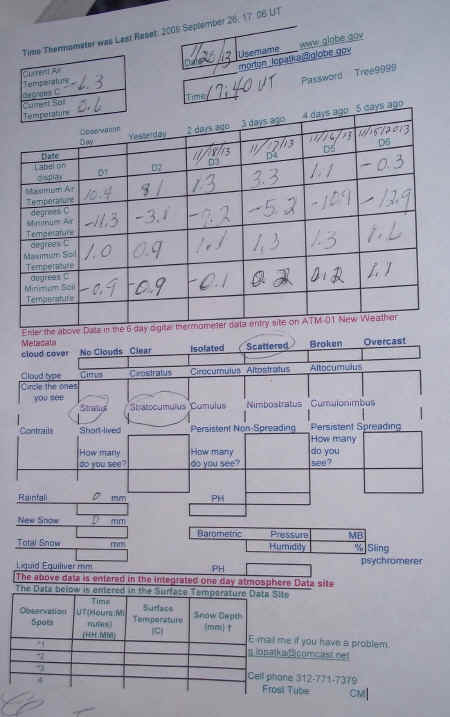 Time Thermometer was Last Reset: 2009 September 26, 17: 06 UT
Current Air Temperature degrees C -1.3
Current Soil Temperature 0.6
Date 11/20/13
Username www.globe.gov
morton_lopatka@globe.gov
Time 17:40 UT Password Tree9999
Observation Day Yesterday 2 days ago 3 days ago 4 days ago 5 days ago
Date 11/18/13 11/17/13 11/16/13 11/15/2013
Label on display D1 D2 D3 D4 D5 D6
Maximum Air Temperature degrees C 10.4 8.1 1.3 3.3 1.1 -0.3
Minimum Air Temperature degrees C -11.3 -3.8 -7.2 -5.2 -10.9 -12.9
Maximum Soil Temperature degrees C 1.0 0.9 1.1 1.3 1.3 1.6
Minimum Soil Temperature -0.9 -0.9 -0.1 0.2 0.2 1.1
Enter the above Data in the 6 day digital thermometer data entry site on ATM-01 New Weather
Metadata
cloud cover No Clouds Clear Isolated Scattered Broken Overcast
Cloud type Cirrus Cirostratus Cirocumulus Altostratus Altocumulus
Circle the ones you see
Stratus Stratocumulus Cumulus Nimbostratus Cumulonimbus
Contrails Short-lived Persistent Non-Spreading Persistent Spreading
How many do you see? How many do you see? How many do you see?
Rainfall 0 mm PH
New Snow 0 mm
Barometric Pressure MB
Total Snow mm Humidity % Sling psychromerer
Liquid Equiliver mm PH
The above data is entered in the integrated one day atmosphere Data site
The Data below is entered in the Surface Temperature Data Site
Observation Spots Time UT(Hours:Minutes) (HH:MM) Surface Temperature (C) Snow Depth (mm) †
*1
*2
*3
E-mail me if you have a problem.
g.lopatka@comcast.net
Cell phone 312-771-7379
Frost Tube CM